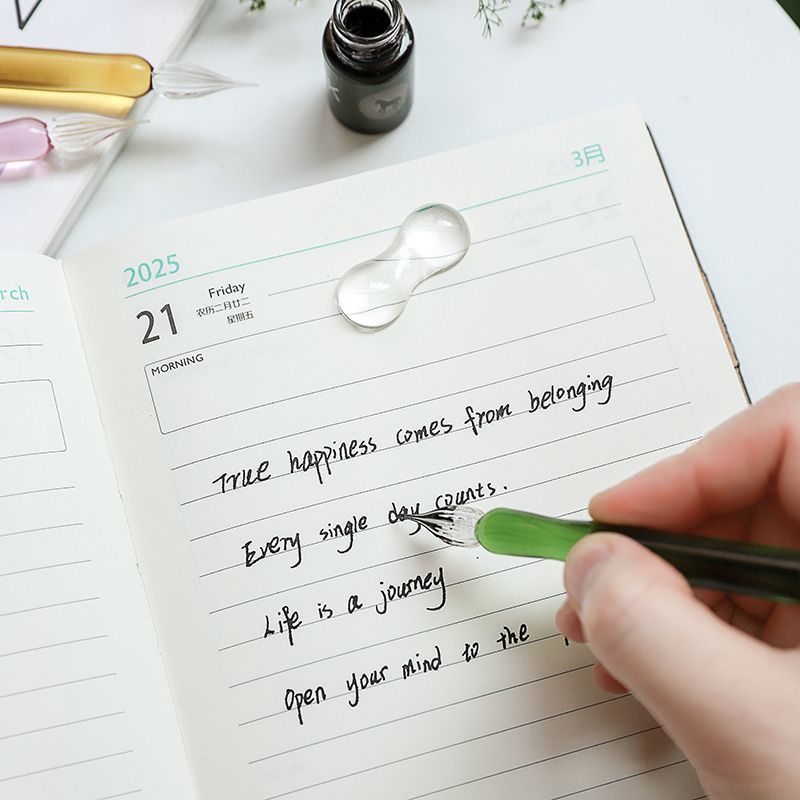 rch
2025
3月
21
Friday
农历二月廿二
星期五
MORNING
True happiness comes from belonging
Every single day counts.
Life is a journey
Open your mind to the